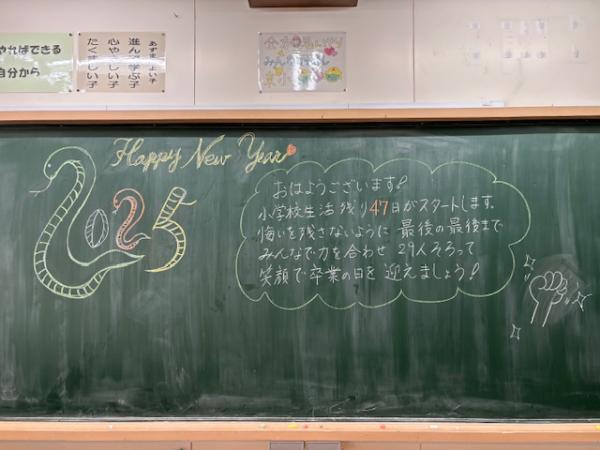 やればできる
自分から
あずまっ子
進んで学ぶ子
心やさしい子
たくましい子
Happy New Year
2025
おはようございます!
小学校生活 残り47日がスタートします。
悔いを残さないように 最後の最後まで
みんなで力を合わせ 29人そろって
笑顔で卒業の日を 迎えましょう!